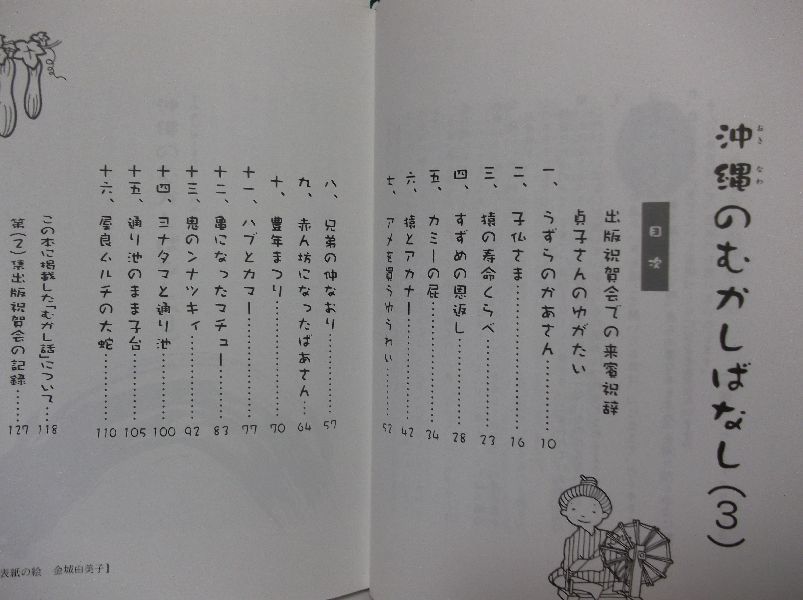 沖縄のむかしばなし(3)
おき なわ
目次
出版祝賀会での来賓祝辞
貞子さんのゆがたい
一、うずらのかあさん…………10
二、子仏さま…………16
三、猿の寿命くらべ…………23
四、すずめの恩返し…………28
五、カミーの屁…………34
六、猿とアカナー…………42
七、アメを買うゆうれい…………52
八、兄弟の仲なおり…………57
九、赤ん坊になったばあさん…64
十、豊年まつり…………70
十一、ハブとカマー…………77
十二、亀になったマチュー……83
十三、鬼のンナツキィ…………92
十四、ヨナタマと通り池………100
十五、通り池のまま子台………105
十六、屋良ムルチの大蛇………110
この本に掲載した「むかし話」について…118
第(2)集出版祝賀会の記録……127
表紙の絵 金城由美子】